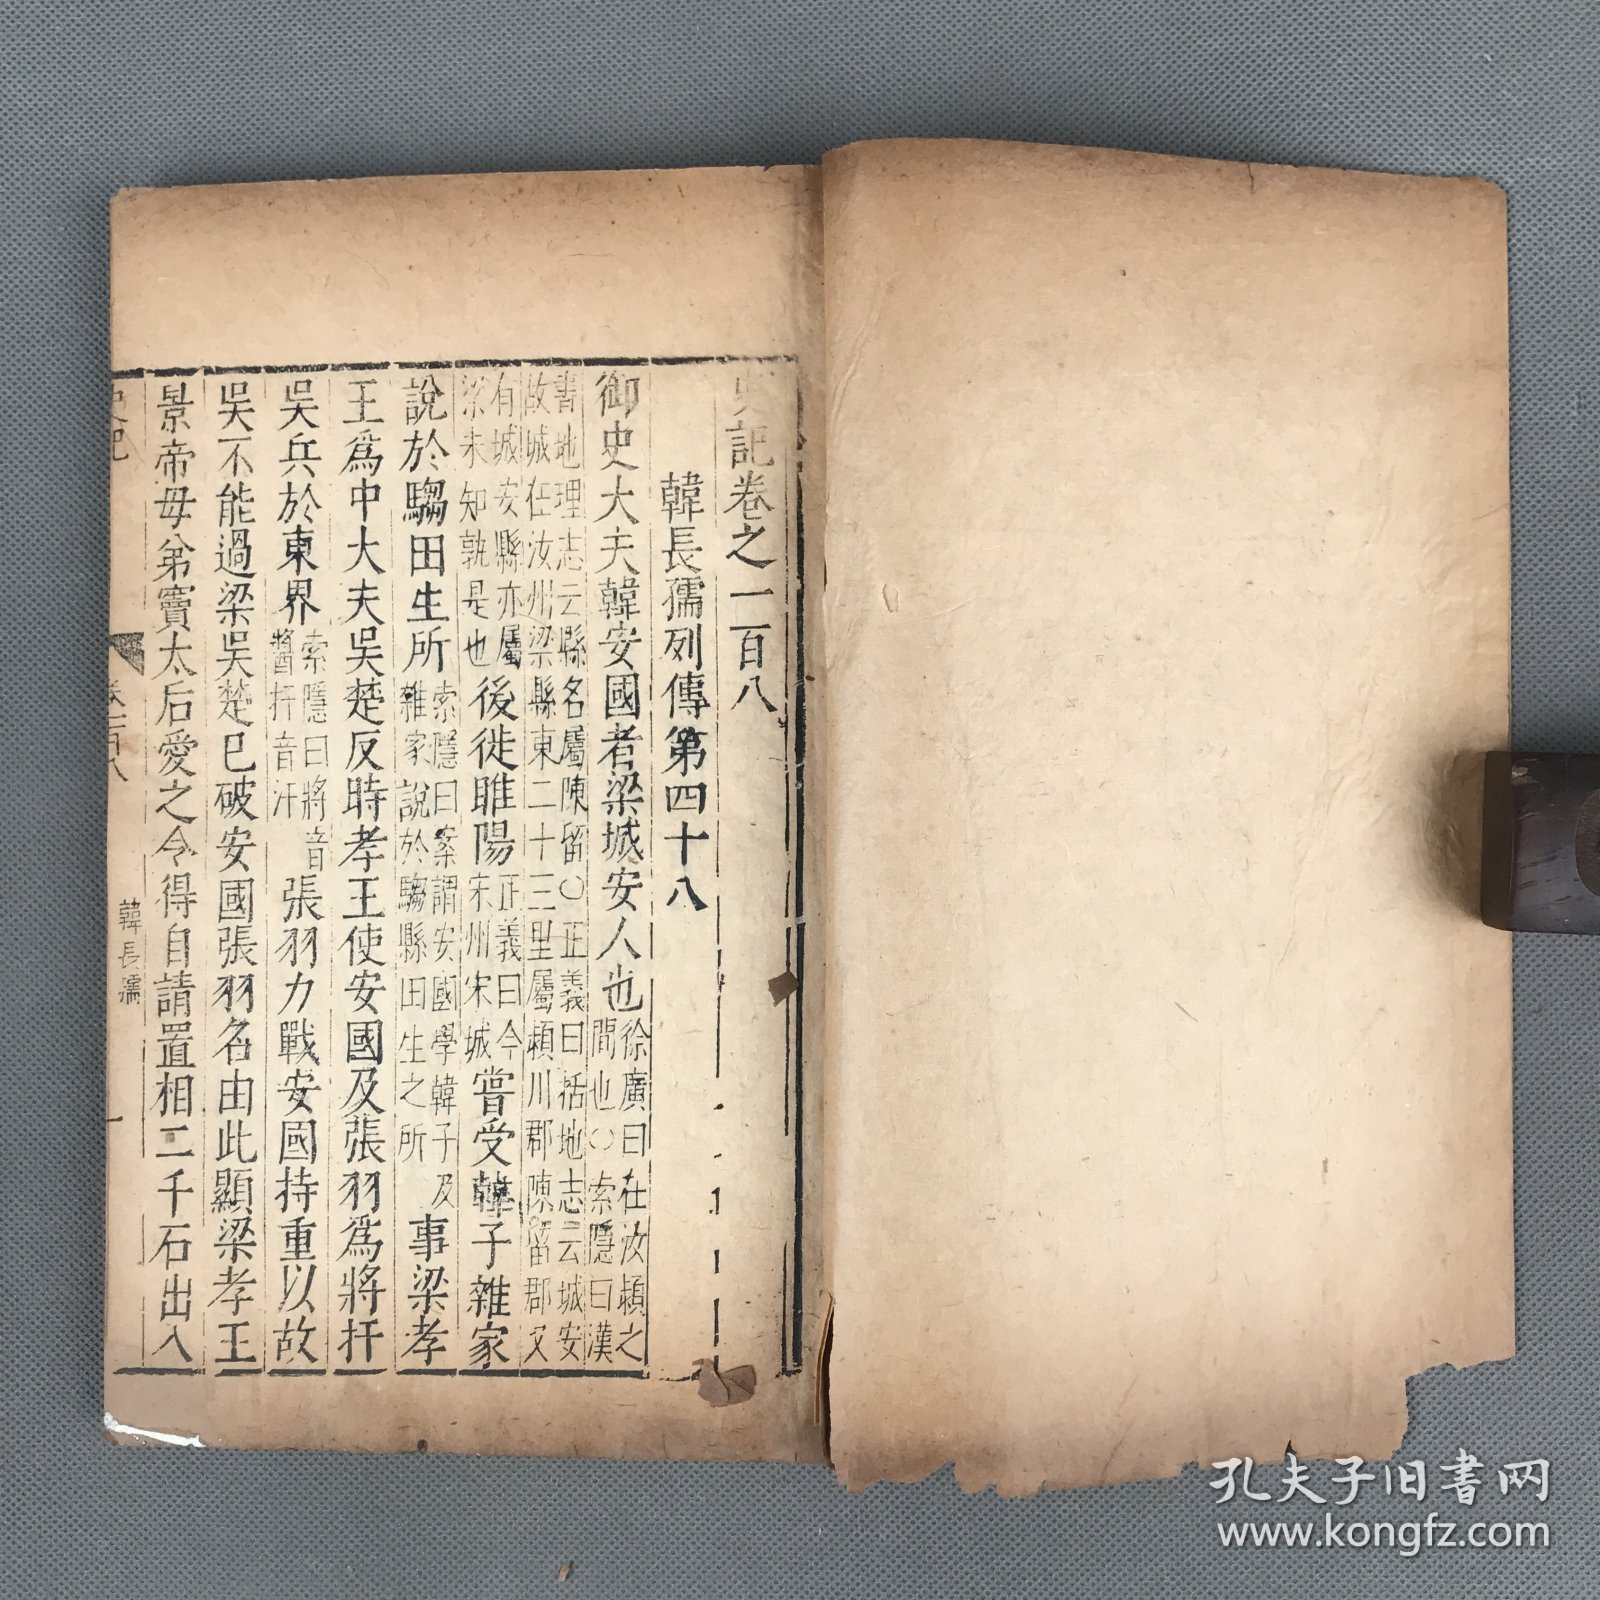 史記卷之一百八
韓長孺列傳第四十八
御史大夫韓安國者梁城安人也徐廣曰在汝潁之間也○索隱曰漢
書地理志云縣名屬陳留○正義曰括地志云城安
故城在汝州梁縣東二十三里屬潁川郡陳留郡又
有城安縣亦屬梁未知孰是也後徙睢陽正義曰今宋州宋城嘗受韓子雜家
說於騶田生所索隱曰案謂安國學韓子及雜家說於騶縣田生之所事梁孝
王爲中大夫吳楚反時孝王使安國及張羽爲將扞
吳兵於東界索隱曰將音醬扞音汗張羽力戰安國持重以故
吳不能過梁吳楚已破安國張羽名由此顯梁孝王
景帝母弟竇太后愛之令得自請置相二千石出入
史記
卷一百八
韓長孺
一
孔夫子旧书网
www.kongfz.com